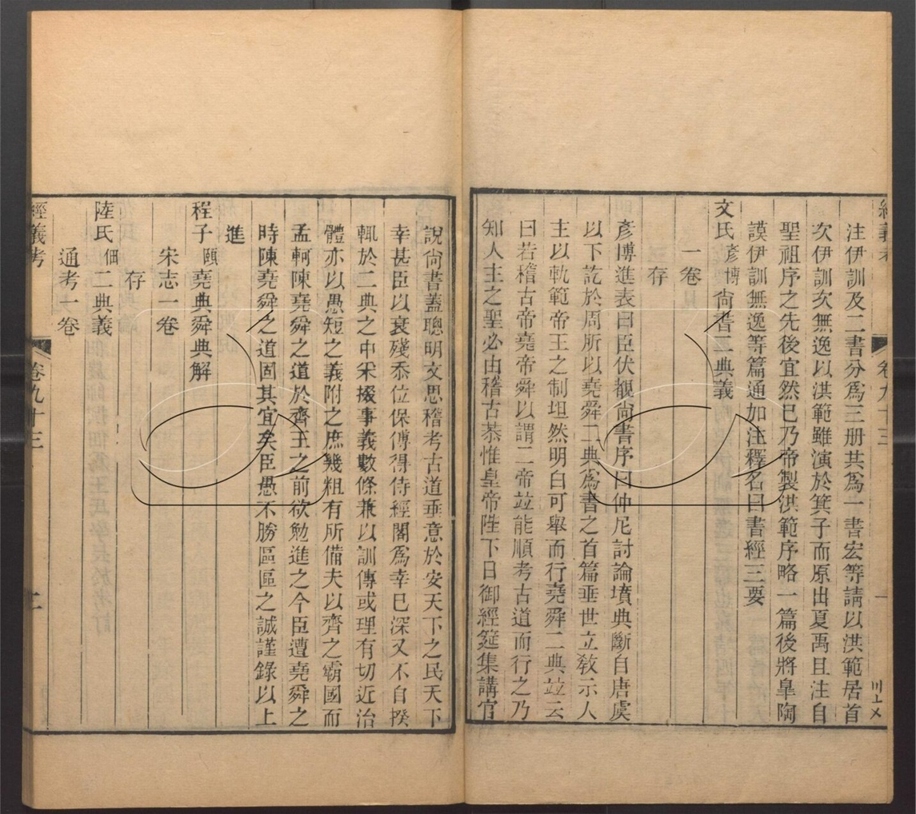 注伊訓及二書分爲三册其爲一書宏等請以洪範居首
次伊訓次無逸以洪範雖演於箕子而原出夏禹且注自
聖祖序之先後宜然已乃帝製洪範序略一篇後將皐陶
謨伊訓無逸等篇通加注釋名曰書經三要
文氏彦博尚書二典義
一卷
存
彦博進表曰臣伏覩尚書序曰仲尼討論墳典斷自唐虞
以下訖於周所以堯舜二典爲書之首篇垂世立敎示人
主以軌範帝王之制坦然明白可舉而行堯舜二典竝云
曰若稽古帝堯帝舜以謂二帝竝能順考古道而行之乃
知人主之聖必由稽古恭惟皇帝陛下日御經筵集講官
說尚書蓋聰明文思稽考古道垂意於安天下之民天下
幸甚臣以衰殘忝位保傅得侍經閣爲幸已深又不自揆
輒於二典之中采掇事義數條兼以訓傳或理有切近治
體亦以愚短之義附之庶幾粗有所備夫以齊之霸國而
孟軻陳堯舜之道於齊王之前欲勉進之今臣遭堯舜之
時陳堯舜之道固其宜矣臣愚不勝區區之誠謹錄以上
進
程子頤堯典舜典解
宋志一卷
存
陸氏佃二典義
通考一卷
經義考 卷九十三 二